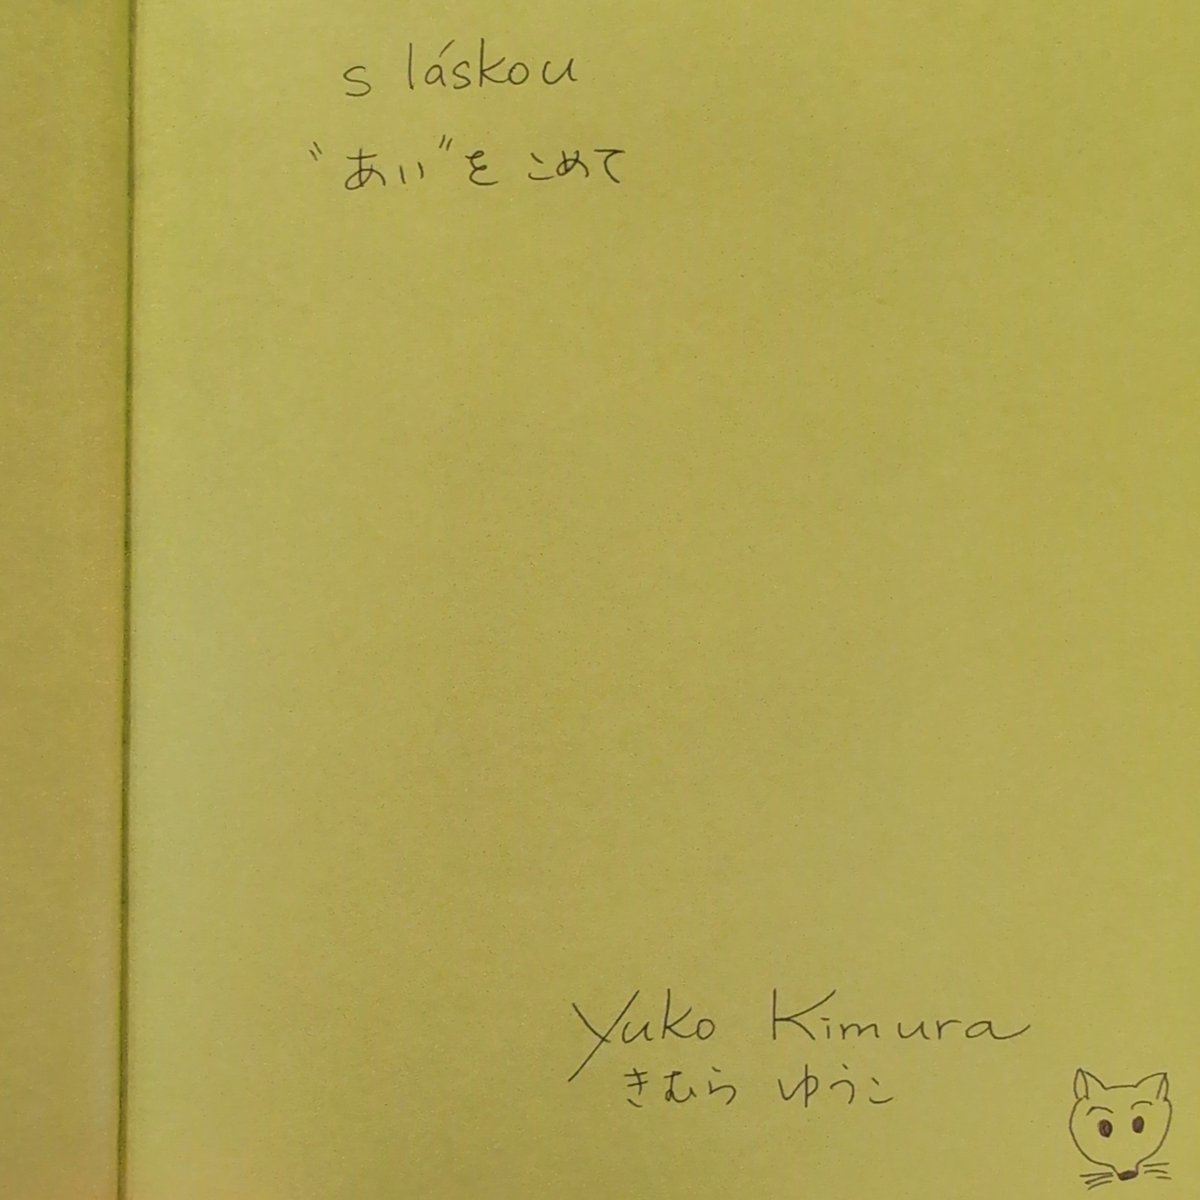 s láskou
“あい”を こめて
Yuko Kimura
きむら ゆうこ